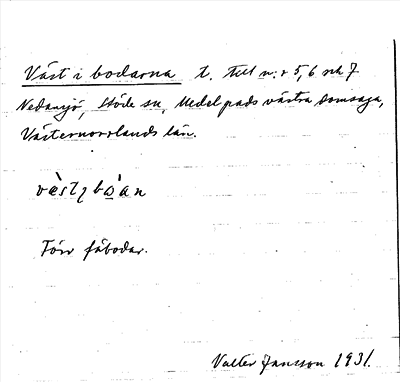 Väst i bodarna t. till nr 5, 6 och 7
Nedansjö, Stöde sn, Medelpads västra domsaga,
Västernorrlands län.
Förr fäbodar.
Valter Jansson 1931.